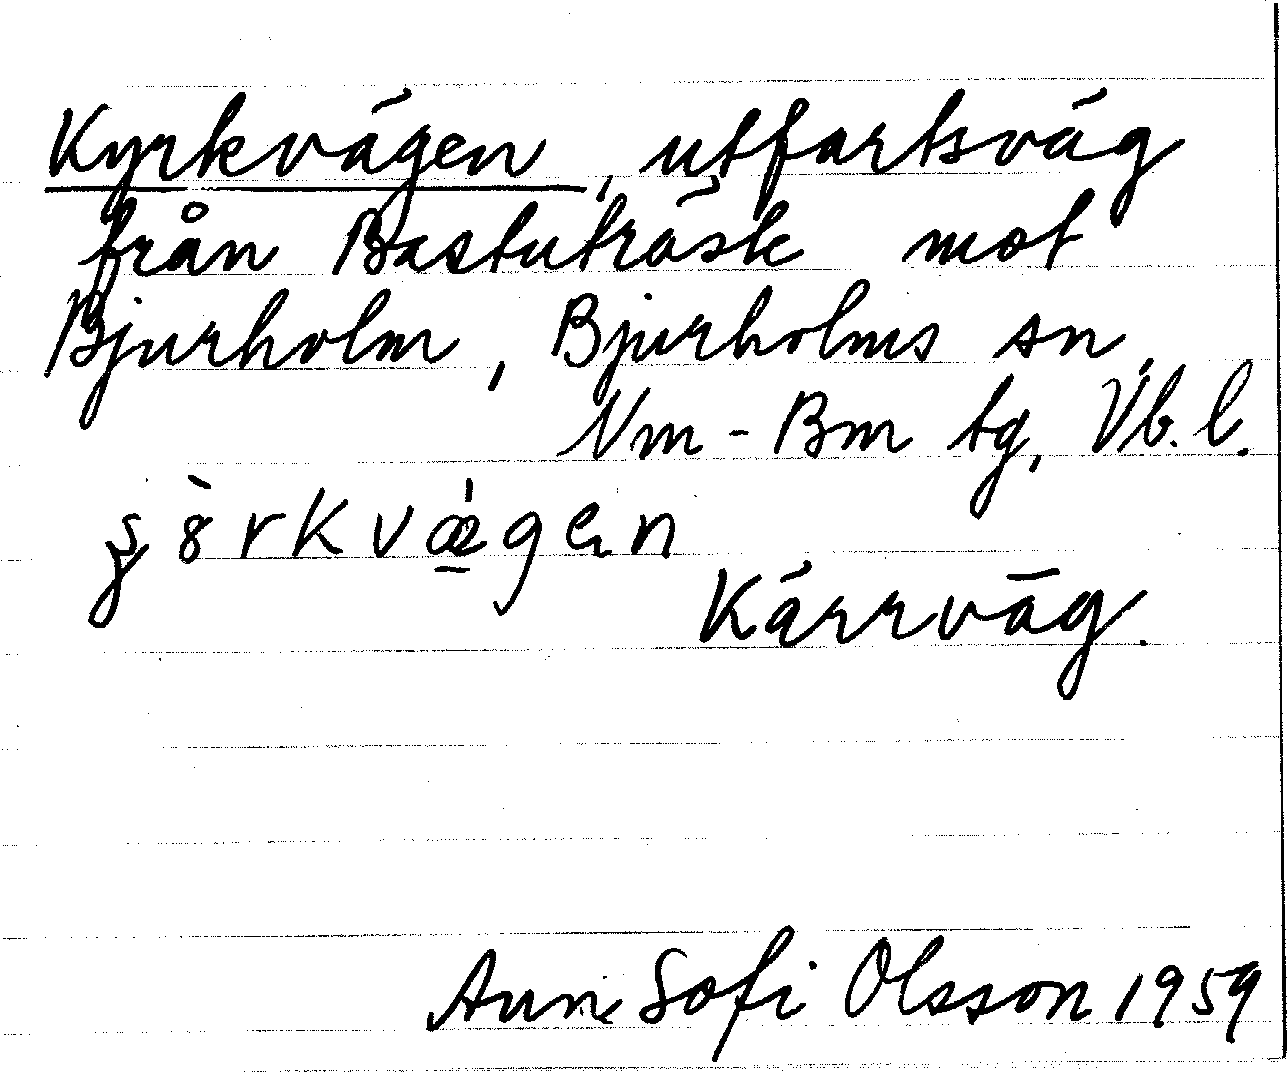 Kyrkvägen, utfartsväg
från Bastuträsk mot
Bjurholm, Bjurholms sn,
Nm-Bm tg, Vb. l.
Kärrväg.
Ann Sofi Olsson 1959